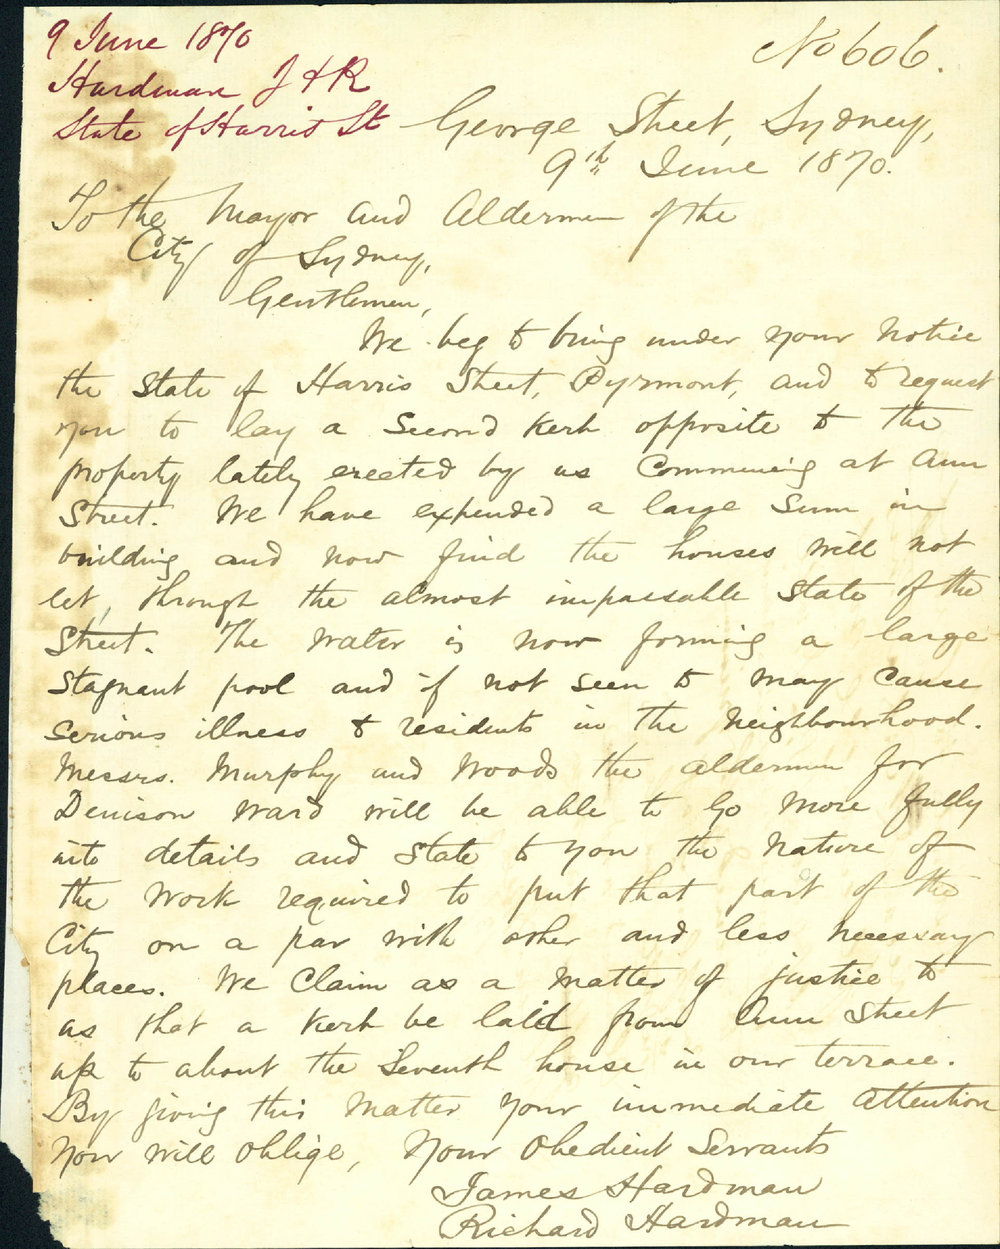 9 June 1870
Hardman J & R
State of Harris St
No 606.
George Street, Sydney,
9th June 1870.
To the Mayor and Aldermen of the
City of Sydney,
Gentlemen,
We beg to bring under your notice
the State of Harris Street, Pyrmont, and to request
you to lay a Second Kerb opposite to the
property lately erected by us Commencing at Ann
Street. We have expended a large Sum in
building and now find the houses will not
let, through the almost impassable State of the
Street. The water is now forming a large
Stagnant pool and if not seen to may Cause
Serious illness to residents in the Neighbourhood.
Messrs. Murphy and Woods the aldermen for
Denison Ward will be able to Go More fully
into details and State to you the Nature of
the Work required to put that part of the
City on a par with other and less necessary
places. We Claim as a Matter of justice to
us that a Kerb be laid from Ann Street
up to about the Seventh house in our terrace.
By giving this Matter your immediate attention
You will oblige, Your Obedient Servants
James Hardman
Richard Hardman